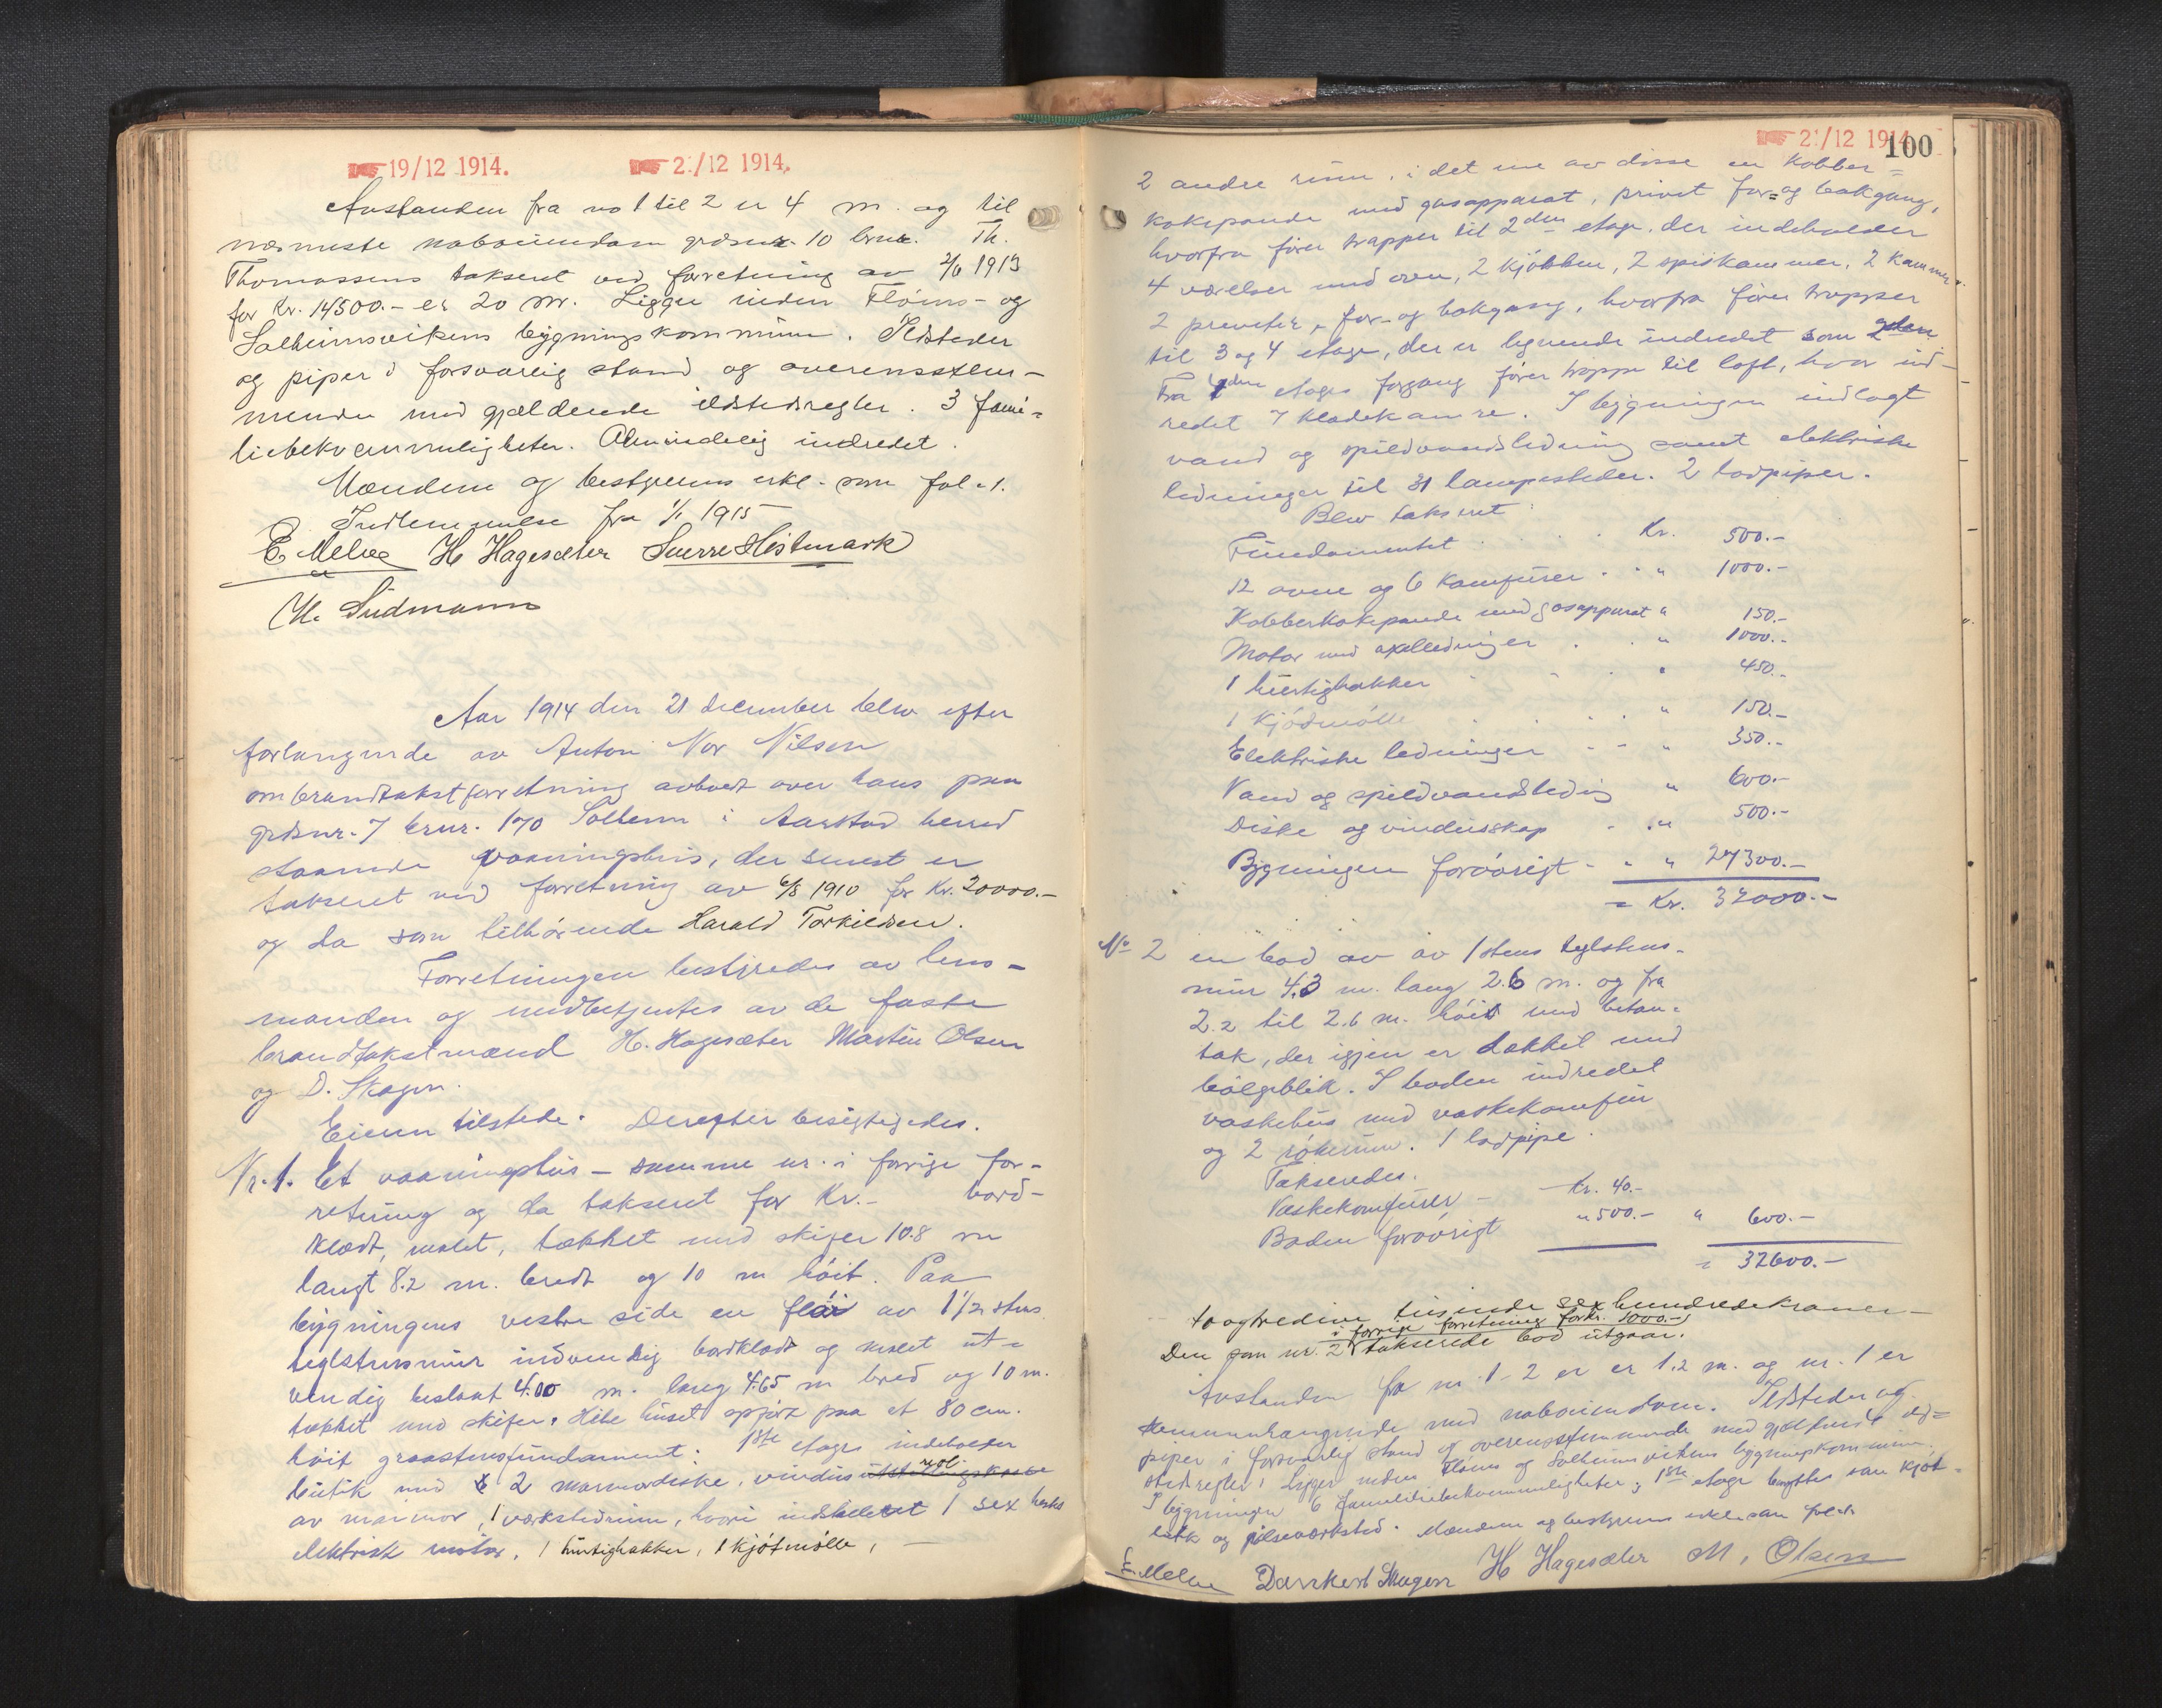 19/12 1914. 2:/12 1914.
Avstanden fra no 1 til 2 er 4 m. og til
næsmeste naboeiendom grdsnr. 10 brnr. Th.
Thomassens takseret ved forretning av 1913
for Kr. 14500.- er 20 mr. Ligger inden Fløens- og
Solheimsvikens bygningskommune. Ildsteder
og piper i forsvarlig stand og overensstem-
mende med gjældende ildstedsregler. 3 fami=
liebekvemmeligheter. Almindelig indredet.
Mændene og bestyrerens erkl. som fol. 1.
Indlemmelse fra 1/1 1915
E. Melve H Hagesæter Sverre Histmark
H. Sudmann
Aar 1914 den 21 december blev efter
forlangende av Anton Nor Nilsen
ombrandtakstforretning avhodt over hans paa
grdsnr. 7 brnr. 170 Solheim i Aarstad herred
staaende vaaningshus, der senest er
takseret ved forretning av 6/8 1910 for Kr. 20000.-
og da som tilhørende Harald Torkildsen.
Forretningen bestyredes av lens-
manden og medbetjentes av de faste
brandtakstmænd H. Hagesæter Martin Olsen
og D. Skagen.
Eieren tilstede. Derefter besigtigedes.
Nr. 1. Et vaaningshus – samme nr. i forrige for-
retning og da takseret for Kr.- bord-
klædt, malet, tækket med skifer 10.8 m
langt 8.2 m. bredt og 10 m høit. Paa
bygningens vestre side en fløi av 1 1/2 stens
teglstensmur indvendig bordklædt og malet ut-
vendig beslaat 4.00 m. lang 4.65 m bred og 10 m.
tækket med skifer. Hele huset opført paa et 80 cm.
høit graastensfundament. 1ste etage indeholder
butik med 2 marmordiske, vindus
av marmor, 1 værkstedsrum, hvori indstalleret 1 sex hesters
elektrisk motor, 1 hurtighakker, 1 kjøtmølle,
2:/12 1914 100
2 andre rum, i det ene av disse en Kobber=
kokepande med gasapparat, privet for= og bakgang,
hvorfra fører trapper til 2den etage, der indeholder
4 værelser med ovn, 2 kjøkken, 2 spiskammer, 2 kammer
2 priveter, for- og bakgang, hvorfra fører trapper
til 3 og 4 etage, der er lignende indredet som 2den
Fra 4den etages forgang fører trappe til loft, hvor ind-
redet 7 klædekamre. I bygningen indlagt
vand og spildvandsledning samt elektriske
ledninger til 31 lampesteder. 2 lodpiper.
Blev takseret:
Fundamentet . . . . Kr. 500.-
12 ovne og 6 komfurer . . " 1000.-
Kobberkokepande med gasapparat " 150.-
Motor med axelledninger . . " 1000.-
1 hurtighakker . . . " 450.-
1 Kjødmølle . . . . " 150.-
Elektriske ledninger - - " 350.-
Vand og spildvandsledig " 600.-
Diske og vindusskap - . " 500.-
Bygningen forøvrigt - - " 27300.-
= Kr. 32000.-
No 2 en bod av av 1 stens teglstens-
mur 4.3 m. lang 2.6 m. og fra
2.2 til 2.6 m. høit med beton-
tak, der igjen er dækket med
bølgeblik. I boden indredet
vaskehus med vaskekomfur
og 2 røkerum. 1 lodpipe.
Takseredes.
Vaskekomfurer - Kr. 40.-
Boden forøvrigt " 500.- " 600.-
= 32600.-
toogtredive tusinde sex hundrede kroner -
i forrige forretning for kr. 1000.-
Den som nr. 2 takserede bod utgaar.
Avstanden fra nr. 1-2 er er 1.2 m. og nr. 1 er
sammenhængende med naboeiendom. Ildsteder og
piper i forsvarlig stand og overensstemmende med gjældende ild=
stedsregler. Ligger inden Fløens og Solheimsvikens bygningskommune.
I bygningen 6 familiebekvemmeligheter; 1ste etage benyttes som kjøt-
butik og pølseværksted. Mændene og bestyrerens erkl. som fol. 1.
E. Melve Dankert Skagen H Hagesæter M. Olsen